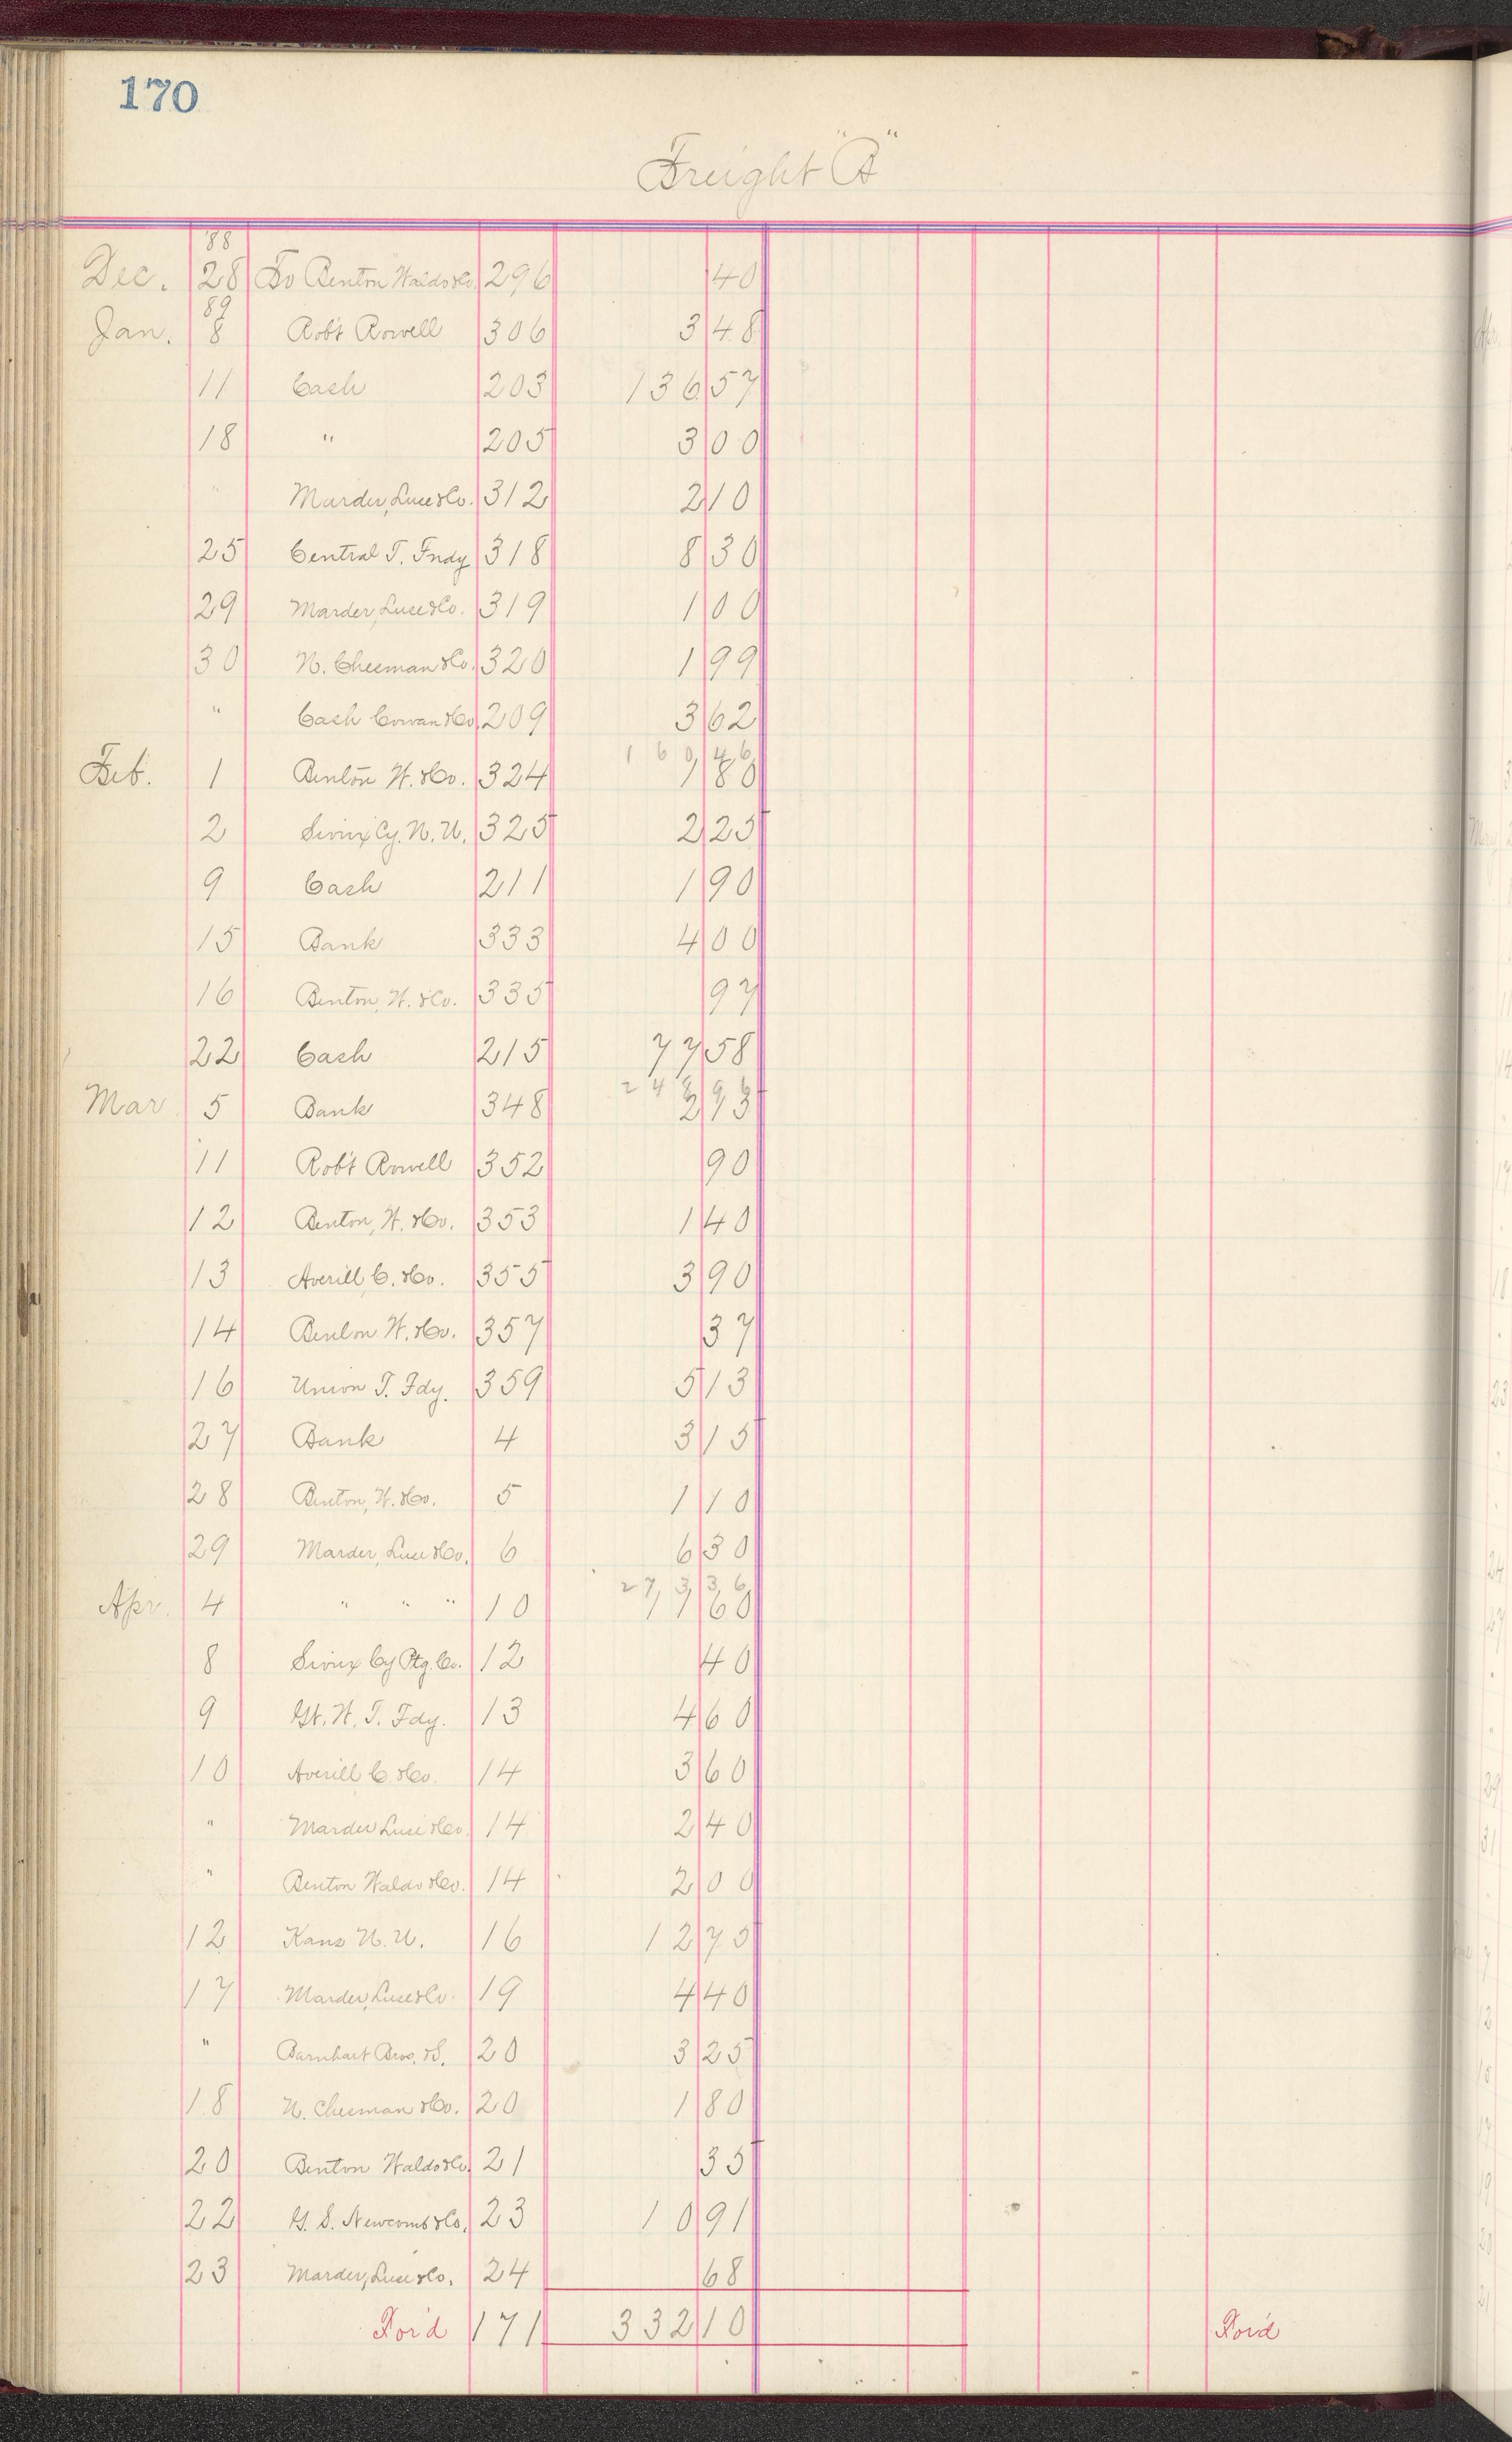 170
Freight "A"
88
Dec. 28 To Benton Waldo & Co. 296 40
89
Jan. 8 Rob't Rowell 306 3 48
11 Cash 203 136 57
18 " 205 3 00
" Marder, Luse & Co. 312 2 10
25 Central T. Fndy 318 8 30
29 Marder, Luse & Co. 319 1 00
30 N. Cheeman & Co. 320 1 99
" Cash Cowan & Co. 209 3 62
160 46
Feb. 1 Benton W. & Co. 324 1 80
2 Sioux Cy. N. U. 325 2 25
9 Cash 211 1 90
15 Bank 333 4 00
16 Benton, W. & Co. 335 97
22 Cash 215 77 58
248 96
Mar. 5 Bank 348 2 15
11 Rob't Rowell 352 90
12 Benton, W. & Co. 353 1 40
13 Averill, C. & Co. 355 3 90
14 Benton W. & Co. 357 37
16 Union T. Fdy. 359 5 13
27 Bank 4 3 15
28 Benton, W. & Co. 5 1 10
29 Marder, Luse & Co. 6 6 30
273 36
Apr. 4 " " " 10 11 60
8 Sioux Cy Ptg. Co. 12 40
9 Gt. W. T. Fdy. 13 4 60
10 Averill C & Co. 14 3 60
" Marder Luse & Co. 14 2 40
" Benton Waldo & Co. 14 2 00
12 Kans N. U. 16 12 75
17 Marder, Luse & Co. 19 4 40
" Barnhart Bros. & S. 20 3 25
18 N. Cheeman & Co. 20 1 80
20 Benton Waldo & Co. 21 35
22 G. S. Newcomb & Co. 23 10 91
23 Marder, Luse & Co. 24 68
For'd 171 332 10 For'd